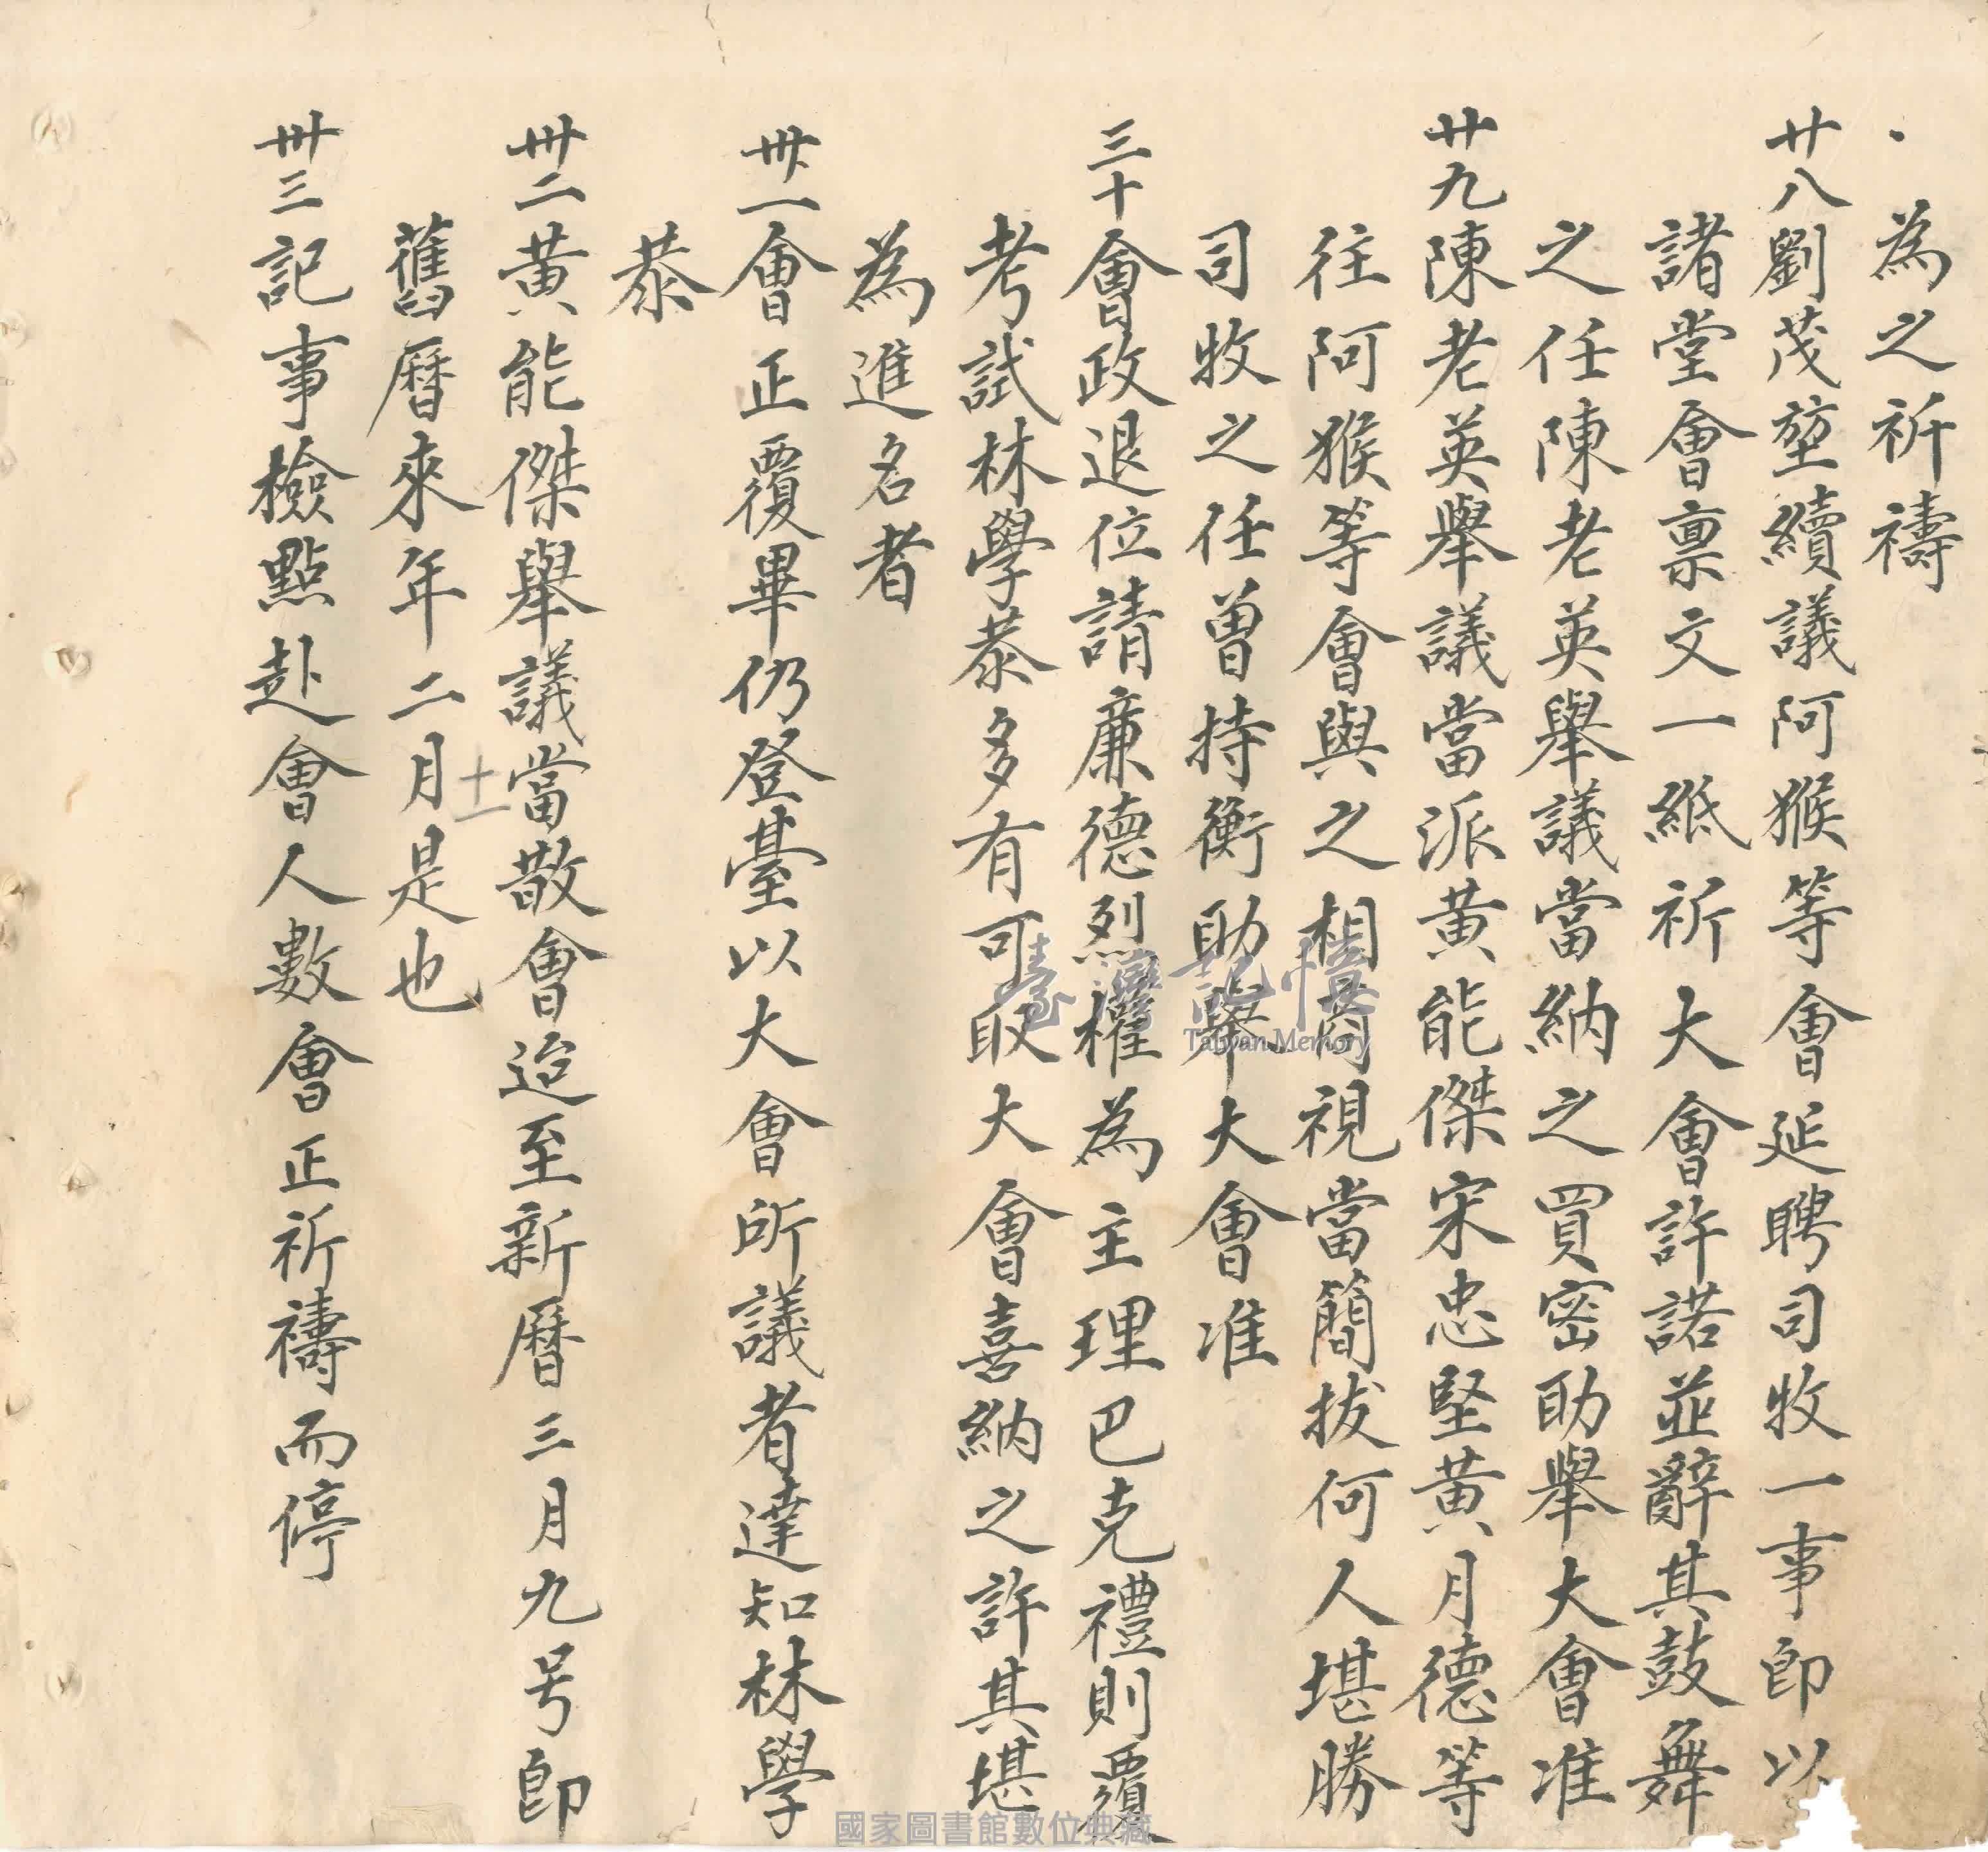 為之祈禱
廿八劉茂堃續議阿猴等會延聘司牧一事即以
諸堂會禀文一紙祈大會許諾並辭其鼓舞
之任陳老英舉議當納之買密助舉大會准
廿九陳老英舉議當派黃能傑宋忠堅黃月德等
往阿猴等會與之相商視當簡拔何人堪勝
司牧之任曾持衡助舉大會准
三十會政退位請廉德烈權為主理巴克禮則覆
考試林學恭多有可取大會喜納之許其堪
為進名者
卅一會正覆畢仍登臺以大會所議者達知林學
恭
卅二黃能傑舉議當散會迨至新曆三月九号即
舊曆來年二月十一是也
卅三記事檢點赴會人數會正祈禱而停
臺灣記憶
Taiwan Memory
國家圖書館數位典藏